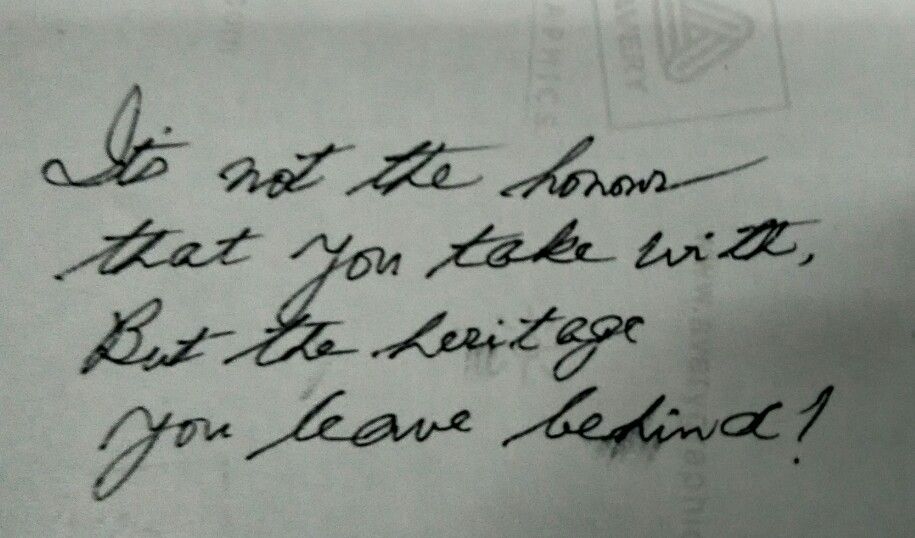 It's not the honour
that you take with,
But the heritage
you leave behind!
AVERY